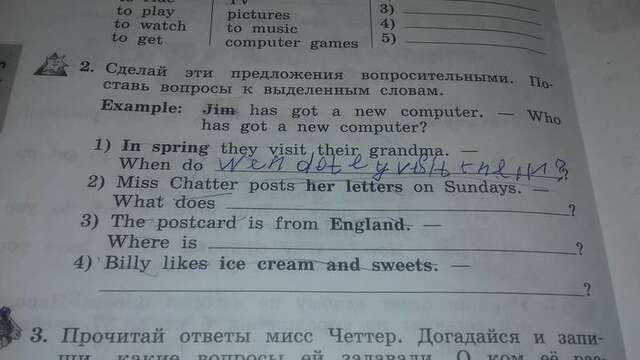 to play
to watch
to get
TV
pictures
to music
computer games
3)
4)
5)
2. Сделай эти предложения вопросительными. По-
ставь вопросы к выделенным словам.
Example: Jim has got a new computer. — Who
has got a new computer?
1) In spring they visit their grandma. —
When do ?
2) Miss Chatter posts her letters on Sundays. —
What does ?
3) The postcard is from England. —
Where is ?
4) Billy likes ice cream and sweets. —
?
3. Прочитай ответы мисс Четтер. Догадайся и запи-
ши, какие вопросы ей задавали. О ком её рас-